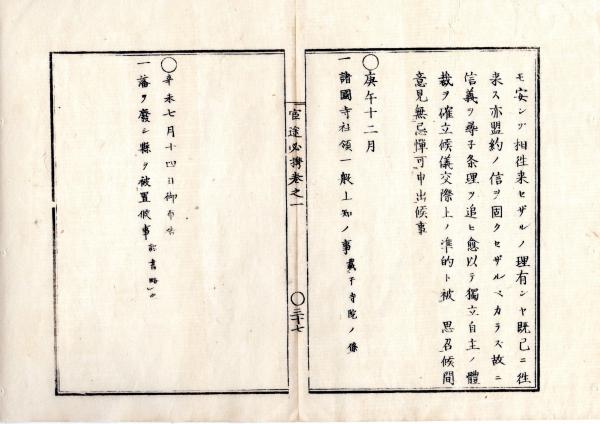 モ安ンゾ相往来セザルノ理有ンヤ既已ニ往
来ス亦盟約ノ信ヲ固クセザルベカラズ故ニ
信義ヲ尋子条理ヲ追ヒ愈以テ獨立自主ノ體
裁ヲ確立候儀交際上ノ準的ト被 思召候間
意見無忌憚可申出候事
〇庚午十二月
一諸國寺社領一般上知ノ事 載于寺院ノ條
官途必携巻之一
〇三十七
〇辛未七月十四日御布告
一藩ヲ廢シ縣ヲ被置候事